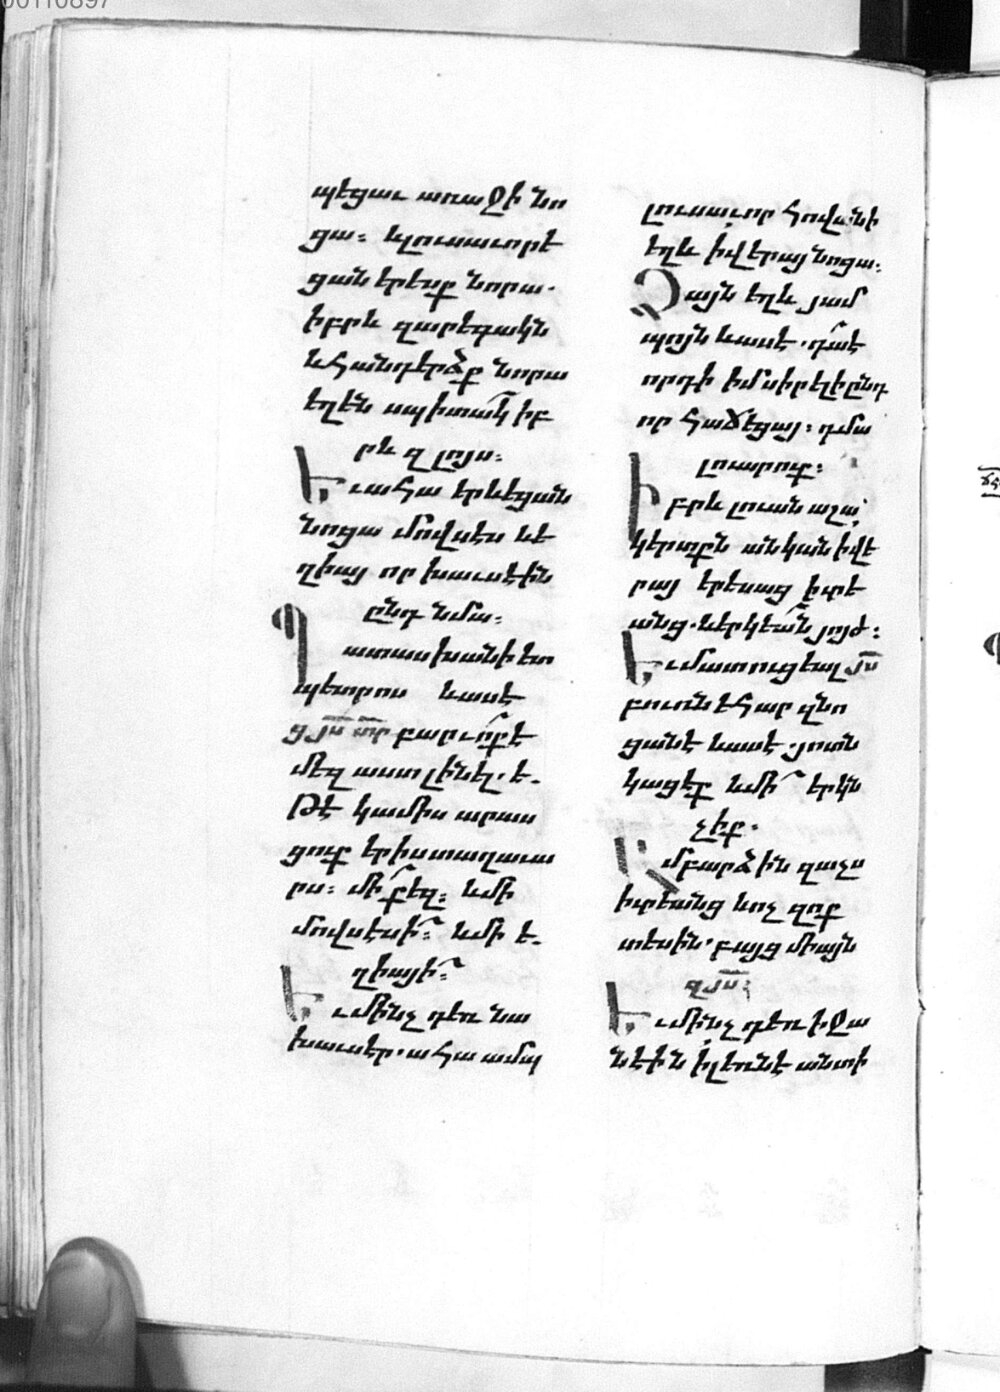 պէցաւ առաջի նո
ցա։ ևլուսաւորե
ցան երեսք նորա.
իբրև զարեգակն
ևհանդերձք նորա
եղեն սպիտակ իբ
րև զ լոյս։
Եւահա երևեցան
նոցա մովսէս ևե
ղիայ որ խաւսէին
ընդ նմա։
Պատասխանի ետ
պետրոս ևասէ
ցյս տր բարւոք է
մեզ աստ լինել. ե
թէ կամիս արաս
ցուք երիս տաղաւա
րս։ մի քեզ։ ևմի
մովսէսի։ ևմի ե
ղիայի։
Եւմինչ դեռ նա
խաւսէր. ահա ամպ
լուսաւոր հովանի
եղև իվերայ նոցա։
Ձայն եղև յամ
պոյն ևասէ. դա է
որդի իմ սիրելի ընդ
որ հաճեցայ։ դմա
լուարուք։
Իբրև լուան աշա
կերտքն անկան իվե
րայ երեսաց իւրե
անց. ևերկեան յոյժ։
Եւմատուցեալ յս
բուռն եհար զնո
ցանէ ևասէ. յոտն
կացէք ևմի երկն
չիք.
Համբարձին զաչս
իւրեանց ևոչ զոք
տեսին. բայց միայն
զյս։
Եւմինչ դեռ իջա
նէին իլեռնէ անտի